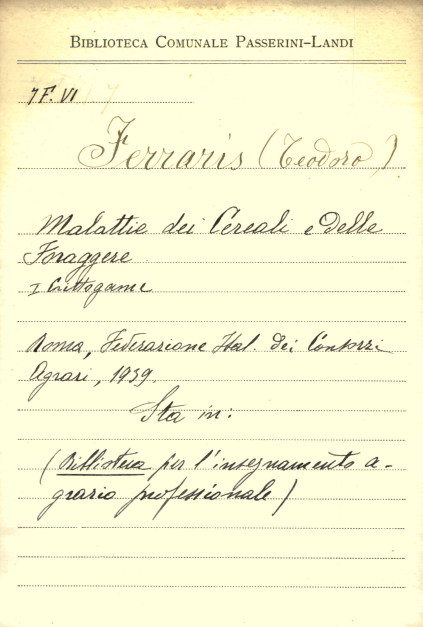 BIBLIOTECA COMUNALE PASSERINI-LANDI
7 F. VI
Ferraris (Teodoro)
Malattie dei Cereali e delle
Foraggere
I Crittogame
Roma, Federazione Ital. dei Consorzi
Agrari, 1939.
Sta in:
(Biblioteca per l'insegnamento a-
grario professionale)